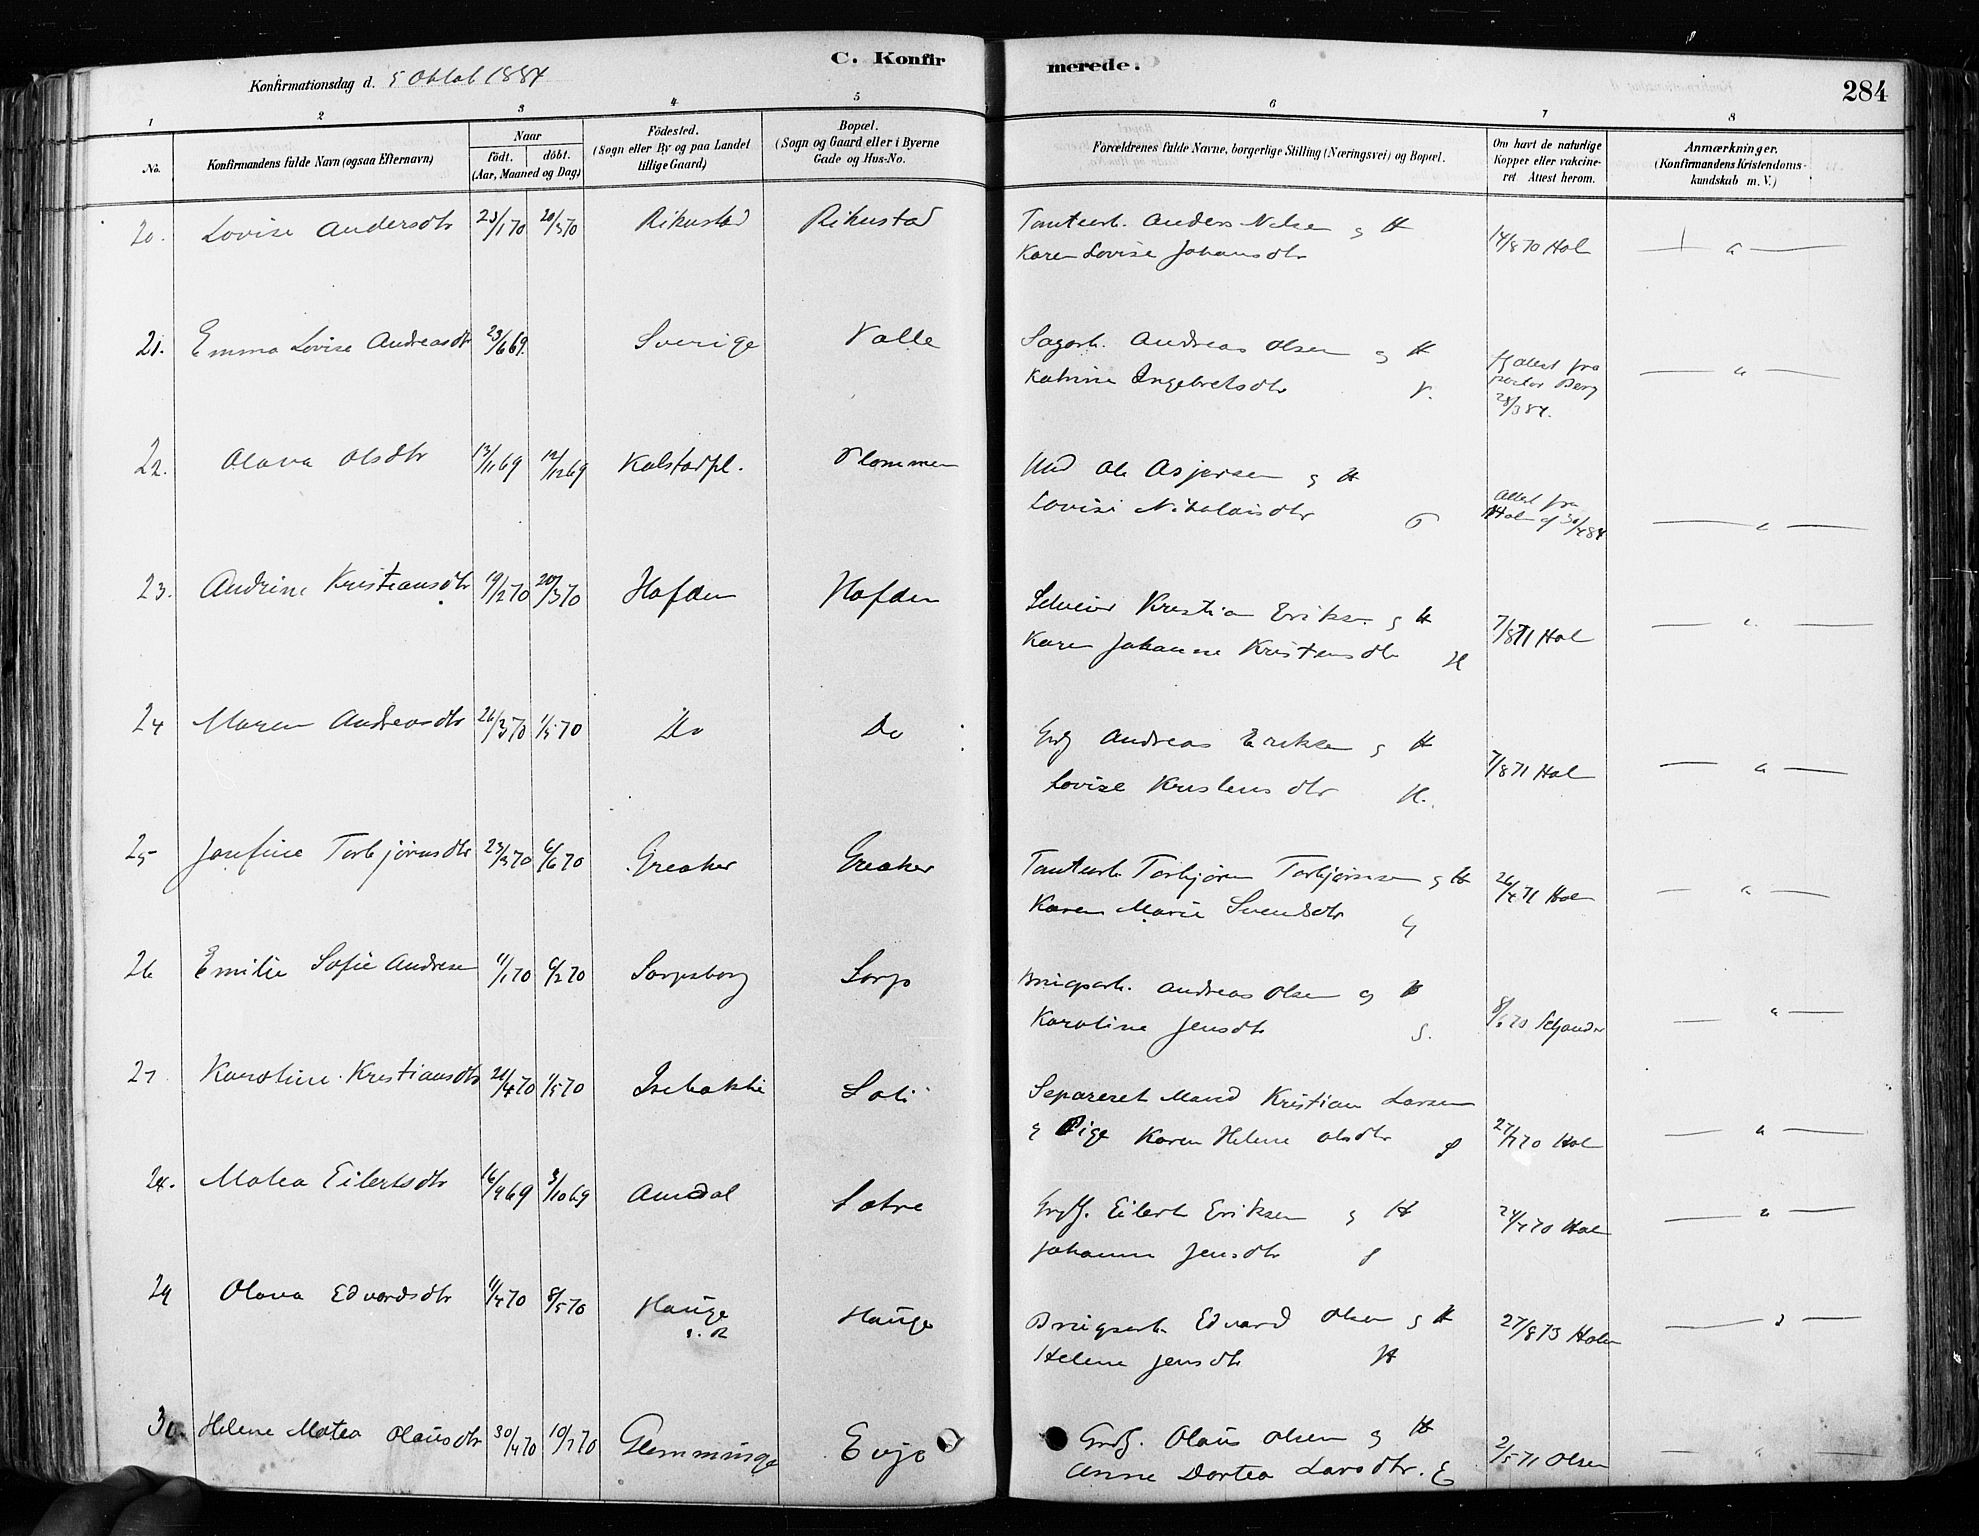 C. Konfirmerede.
284
Konfirmationsdag d. 5 Oktob 1884
1 2 3 4 5 6 7 8
No. Konfirmandens fulde Navn (ogsaa Efternavn) Naar födt. döbt. (Aar, Maaned og Dag) Födested. (Sogn eller By og paa Landet tillige Gaard) Bopæl. (Sogn og Gaard eller i Byerne Gade og Hus-No. Forældrenes fulde Navne, borgerlige Stilling (Næringsvei) og Bopæl. Om havt de naturlige Kopper eller vakcineret Attest herom. Anmærkninger. (Konfirmandens Kristendomskundskab m. V.)
20. Lovise Andersdtr 23/1 70 20/3 70 Rikustad Rikustad Tomtearb. Anders Nilsen og H
Karen Lovise Johansdtr 14/8 70 Hol
21. Emma Lovise Andreasdtr 23/6 69. Sverige Valle Sagarb. Andreas Olsen og H
Katrine Ingebretsdtr V. attest fra
Berg
28/3 84.
22. Olava Olsdtr 13/11 69 12/12 69 Kalstadpl. Plommen Ole Asjersen og H
Lovise Nikolaisdtr attest fra
Holm af 30/4 84
23. Andrine Kristiansdtr 19/2 70 20/3 70 Hafden Hafden Selveier Kristian Eriksen og H
Karen Johanne Kristensdtr H 7/8 71 Hol
24 Maren Andreasdtr 26/3 70 1/5 70 Do Do Grdj Andreas Eriksen og H
Lovise Kristensdtr H. 7/8 71 Hol
25 Josefine Torbjørnsdtr 23/3 70 6/6 70 Greaker Greaker Tomtearb Torbjørn Torbjørnsen og H
Karen Marie Svendsdtr G 26/4 71 Hol
26 Emilie Sofie Andresen 11/1 70 6/2 70 Sarpsborg Sarp Brugsarb. Andreas Olsen og H
Karoline Jensdtr S. 70
27 Karoline Kristiansdtr 26/4 70 1/5 70 Isebakke Soli Separeret Mand Kristian Larsen
og Pige Karen Helene Olsdtr S 27/7 70 Hol
28. Matea Eilertsdtr 16/9 69 3/10 69 Aamdal Satre Grdj. Eilert Eriksen og H
Johanne Jensdtr S 24/7 70 Holm
29 Olava Edvardsdtr 11/4 70 8/5 70 Hauge Hauge Brugsarb. Edvard Olsen og H
Helene Jensdtr H 27/8 73 Holm
30. Helene Matea Olausdtr 30/4 70 10/7 70 Glemminge Evje Grdj. Olaus Olsen og H
Anne Dortea Larsdtr. E 2/5 71 Olsen